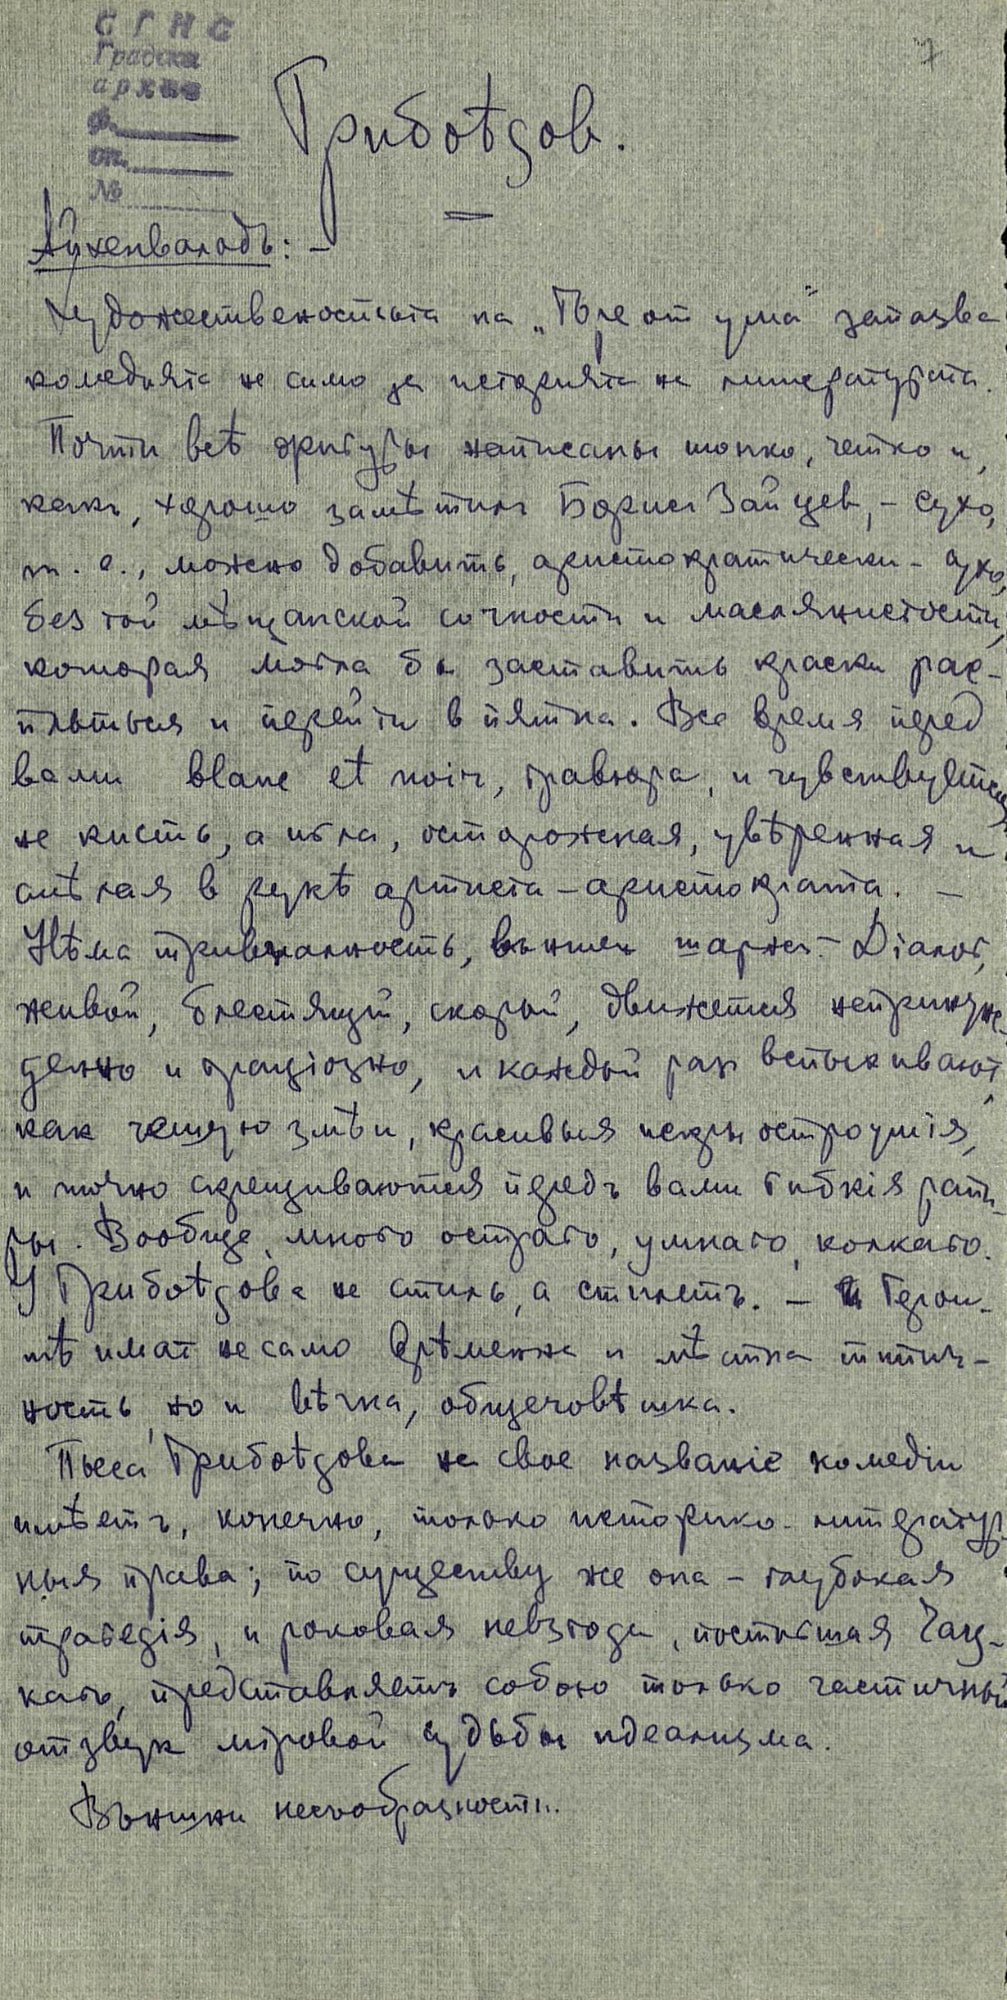 СГНС
Градски
архив
ф.
оп.
№
7
Грибоѣдов.
Айхенвалдъ: –
Художественостьта на „Горе от ума" запазва
комедията не само за историята на литературата.
Почти всѣ фигуры написаны тонко, четко и,
какъ, хорошо замѣтилъ Борисъ Зайцев, – сухо,
т. е., можно добавить, аристократически-сухо,
без той мѣщанской сочности и маслянистости,
которая могла бы заставить краски рас-
плыться и перейти в пятна. Все время перед
вами blanc et noir, гравюра, и чувствуется
не кисть, а игла, осторожная, увѣренная и
смѣлая в рукѣ артиста-аристократа. –
Нѣма тривиалность, външен шарж. – Dіалог,
живой, блестящий, скорый, движется непринуж-
денно и граціозно, и каждый раз вспыхивают,
как чешую змѣи, красивыя искры остроумія,
и точно скрещиваются передъ вами гибкія рапи-
ры. Вообще, много остраго, умнаго, колкаго.
У Грибоѣдова не стиль, а стилетъ. – Герои-
тѣ имат не само врѣменна и мѣстна типич-
ность, но и вѣчна, общечовѣшка.
Пьеса Грибоѣдова на свое названіе комедіи
имѣетъ, конечно, только историко-литератур-
ныя права; по существу же она – глубокая
трагедія, и роковая невзгода, постигшая Чац-
каго, представляетъ собою только частичный
отзвук міровой судьбы идеализма.
Външни несъобразности.